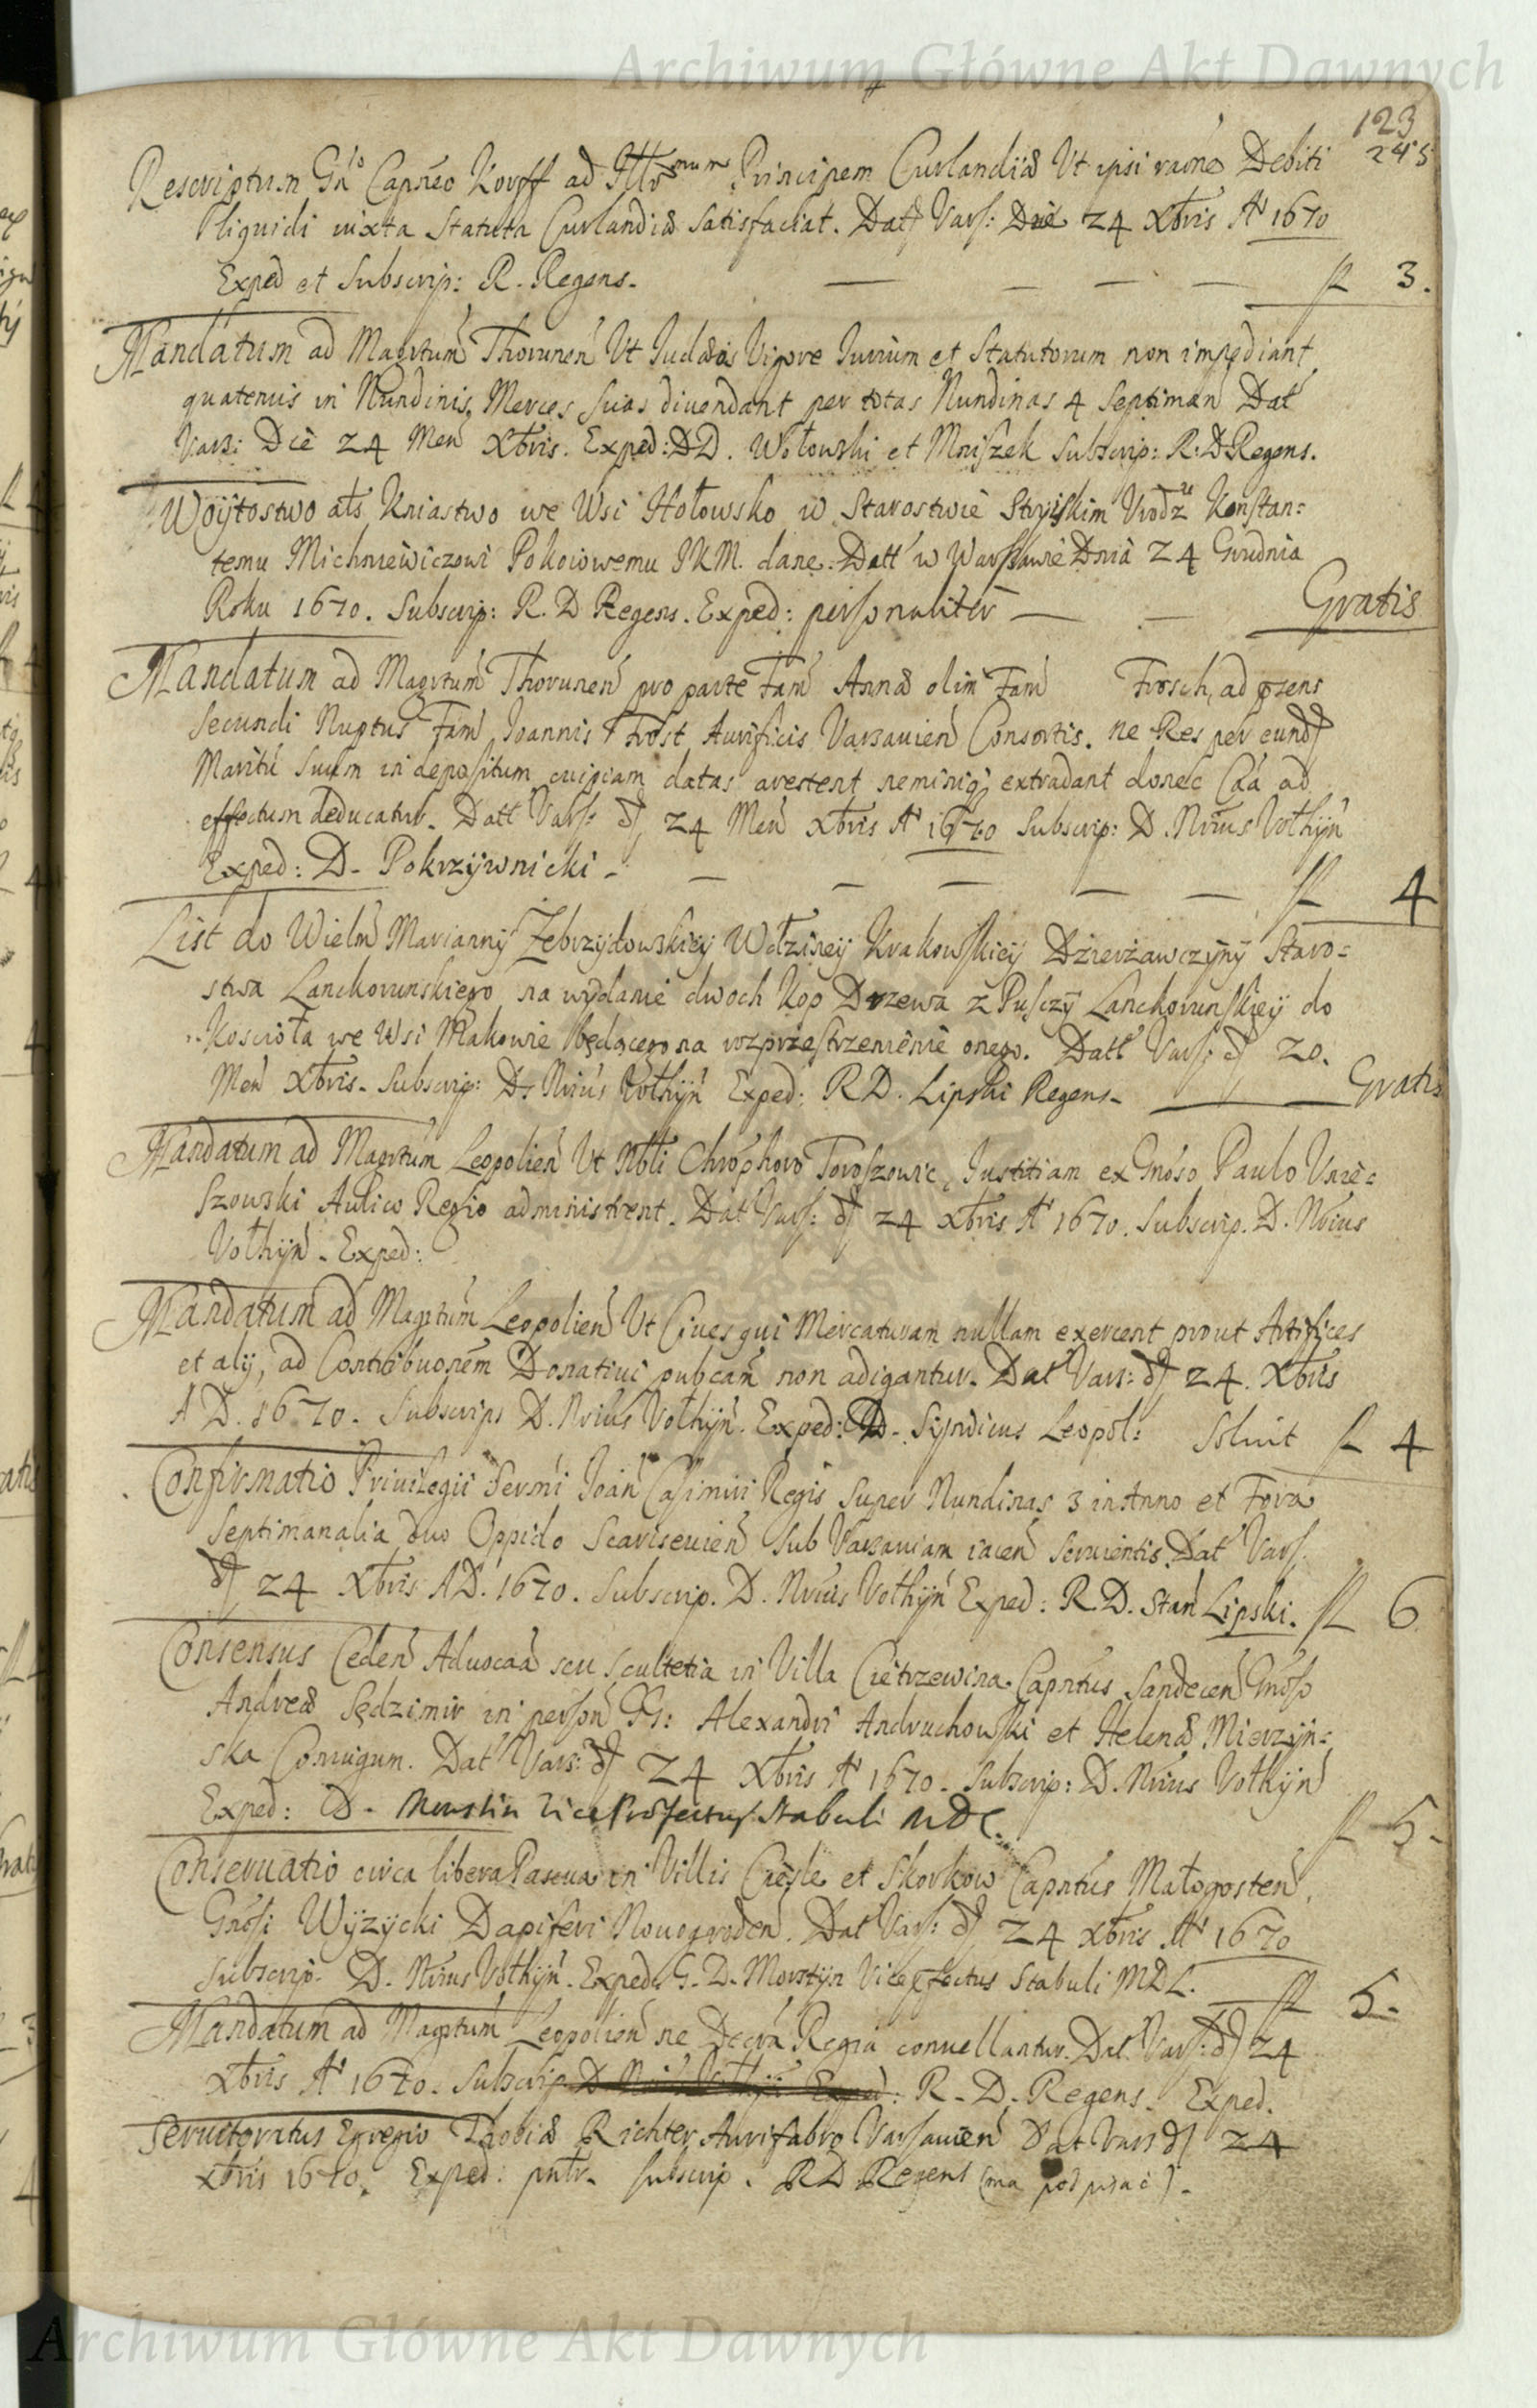 Archiwum Główne Akt Dawnych
123
245
Rescriptum Gn͠so Capneo Korff ad Illr̃mum Principem Curlandiæ Vt ipsi raõne Debiti
liquidi iuxta Statuta Curlandiæ satisfaciat. Datt Vars: Die 24 Xbris Aº 1670
Exped et Subscrip: R. Regens. — — — — fl 3.
Mandatum ad Magrtum Thorunen Vt Judæos Vigore Iurium et Statutorum non impediant
quatenus in Nundinis Merces suas diuendant per totas Nundinas 4 Septiman Dat
Vars: Die 24 Men Xbris. Exped: DD. Wołowski et Moriszek Subscrip: R. D Regens.
Woÿtostwo ałs Kniastwo we Wsi Hołowsko w Starostwie Stryiskim Vrodz Konstan:
temu Michniewiczowi Pokoiowemu JKM. dane. Datt w Warszawie Dnia 24 Grudnia
Roku 1670. Subscrip: R. D Regens. Exped: personaliter — — Gratis
Mandatum ad Magrtum Thorunen pro parte Fam Annæ olim Fam Frosch, ad pzens
secundi Nuptus Fam Joannis Frost Aurificis Varsauien Consortis. ne Res per eund
Maritu suum in depositum cuipiam datas arestent neminiq extradant donec Caa ad
effectum deducatur. Datt Vars: d 24 Men Xbris Aº 1670 Subscrip: D. Nrius Vołhÿn
Exped: D. Pokrzÿwnicki — — — — — — fl 4
List do Wielm Mariannÿ Zebrzydowskieÿ Wdzineÿ Krakowskieÿ Dzierżawczÿnÿ Staro=
stwa Lanckorunskiego na wydanie dwoch kop Drzewa z Pusczÿ Lanckorunskieÿ do
Koscioła we Wsi Makowie będącego na rozprzestrzenienie onego. Datt Vars: d 20.
Men Xbris. Subscrip: D. Nrius Vołhÿn Exped: R D. Lipski Regens. — Gratis
Mandatum ad Magrtum Leopolien Vt Nbli Chrophoro Toroszowic Justitiam ex Gnoso Paulo
szowski Aulico Regio administrent. Dat Vars: d 24 Xbris Aº 1670. Subscrip. D. Nrius
Vołhÿn. Exped:
Mandatum ad Magrtum Leopolien Vt Ciues qui Mercaturam nullam exercent prout Artifices
et alij, ad Contribuonem Donatiui pubcam non adigantur. Dat Vars: d 24. Xbris
A D. 1670. Subscrips D. Nrius Vołhÿn. Exped: D. Sÿndicus Leopol: Soluit fl 4
Confirmatio Priuilegii Sermi Joan Casimiri Regis super Nundinas 3 in Anno et Fora
Septimanalia duo Oppido Scariseuien sub Varsauiam iacen seruientis. Dat Vars.
d 24 Xbris AD. 1670. Subscrip. D. Nrius Vołhÿn Exped: R. D. Stan Lipski. fl 6
Consensus Ceden Aduocaa seu scultetia in Villa Cietrzewina Capntus Sandecen Gnoso
Andreæ Sędzimir in person GG: Alexandri Andruchowski et Helenæ Mierzÿn:
ska Coniugum. Dat Vars: d 24 Xbris Aº 1670. Subscrip: D. Nrius Vołhÿn
Exped: D. Morstin Vice Præfectus Stabuli M D L. fl 5.
Conseruatio circa libera Pascua in Villis Ciesle et Skorkow Capntus Małogosten
Gnosi Wÿzÿcki Dapiferi Nouogroden. Dat Vars: d 24 Xbris Aº 1670
Subscrip. D. Nrius Vołhÿn. Exped. G. D. Morstÿn Vicepfectus Stabuli MDL. fl 5.
Mandatum ad Magrtum Leopolien ne Decra Regia conuellantur. Dat. Vars: d 24
Xbris Aº 1670. Subscrip D. Nrius Vołhÿn Exped: R. D. Regens. Exped.
Seruitoratus Egregio Thobiæ Richter Aurifabro Varsauien Dat Vars d 24
Xbris 1670. Exped: pntr. subscrip. R D Regens (ma podpisać).
Archiwum Główne Akt Dawnych